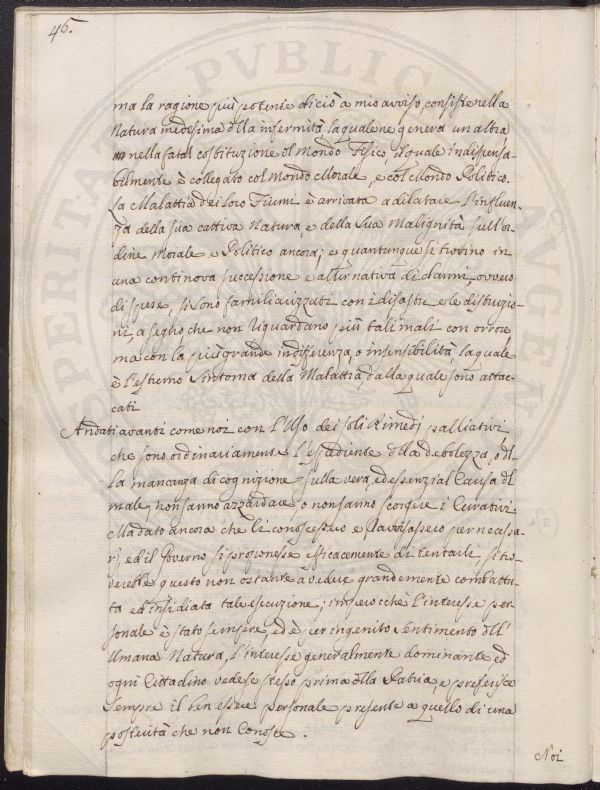 46.
ma la ragione più potente di ciò a mio avviso, consiste nella
Natura medesima dlla infermità, la quale ne genera un altra
nella fatal costituzione dl Mondo Fisico, il quale indispensa-
bilmente è collegato col Mondo Morale, e col Mondo Politico.
La Malattia dei loro Fiumi è arrivata a dilatare l'influen-
za della sua cattiva Natura, e della sua Malignità sull'or-
dine Morale e Politico ancora; e quantunque si trovino in
una continova successione e alternativa di danni, ovvero
di spese, si sono familiarizzati con i disastri e le distruzio-
ni, a segno che non riguardano più tali mali con orrore
ma con la più grande indifferenza, o insensibilità, la quale
è l'estremo Sintoma della Malattia dalla quale sono attac-
cati
Andati avanti come noi con l'Uso dei soli Rimedj palliativi
che sono ordinariamente l'espediente dlla debolezza, o dl-
la mancanza di cognizione sulla vera, ed essenzial Causa dl
male, non sanno azzardare, o non sanno scorgere i Curativi
Ma dato ancora che li conoscessero e ravvisassero per necessa-
rj ed il Governo si proponesse efficacemente di tentarli, si tro-
verebbe questo non ostante a vedere grandemente combattu-
ta ed insidiata tale esecuzione; imperocchè l'interesse per-
sonale è stato sempre, ed è per ingenito sentimento dll'
Umana Natura, l'interesse generalmente dominante, ed
ogni Cittadino vede se stesso prima dlla Patria, e preferisce
sempre il ben essere personale presente a quello di una
posterità che non conosce.
Noi
PVBLICA
AVGENDO